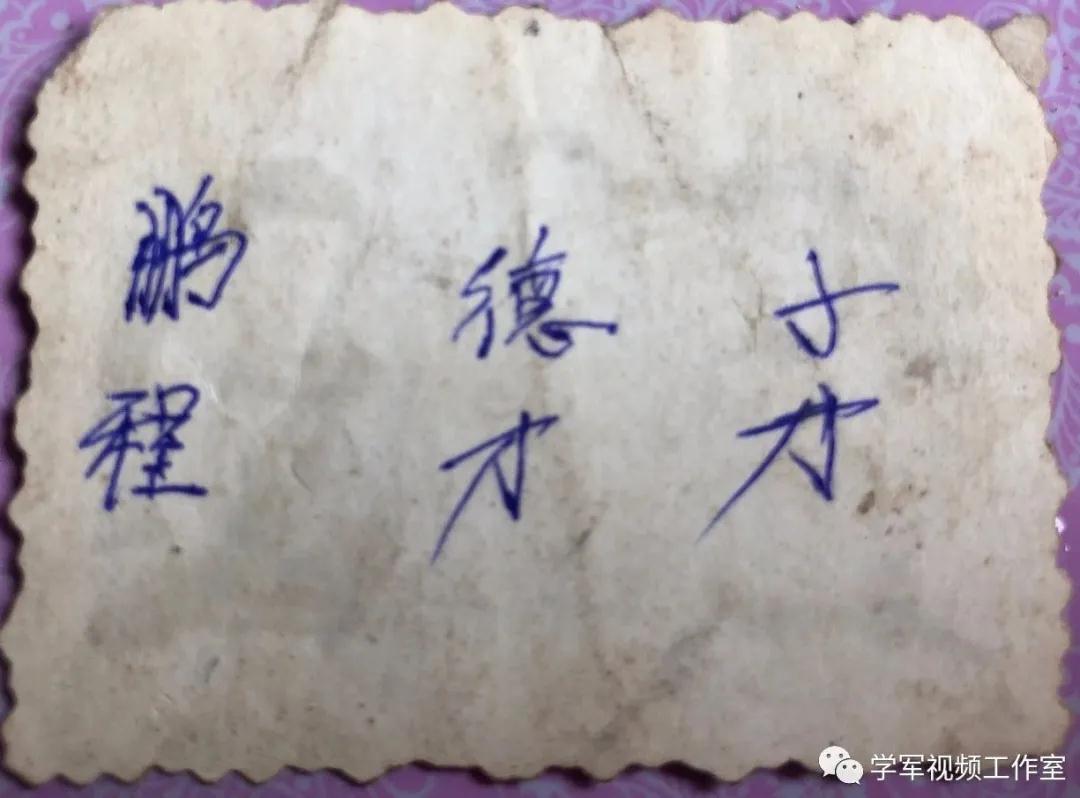 鹏程
德才
才
学军视频工作室